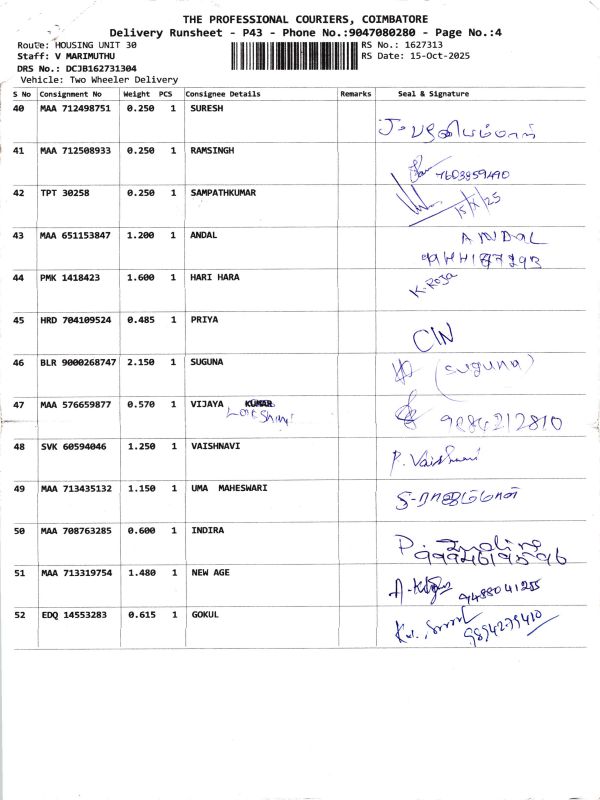 THE PROFESSIONAL COURIERS, COIMBATORE
Delivery Runsheet - P43 - Phone No.:9047080280 - Page No.:4
Route: HOUSING UNIT 30 RS No.: 1627313
Staff: V MARIMUTHU RS Date: 15-Oct-2025
DRS No.: DCJB162731304
Vehicle: Two Wheeler Delivery
S No Consignment No Weight PCS Consignee Details Remarks Seal & Signature
40 MAA 712498751 0.250 1 SURESH
41 MAA 712508933 0.250 1 RAMSINGH
7603859490
42 TPT 30258 0.250 1 SAMPATHKUMAR
15/X/25
43 MAA 651153847 1.200 1 ANDAL ANDAL
44 PMK 1418423 1.600 1 HARI HARA K. Roja
45 HRD 704109524 0.485 1 PRIYA
CIN
46 BLR 9000268747 2.150 1 SUGUNA (Suguna)
47 MAA 576659877 0.570 1 VIJAYA KUMAR
9084212810
48 SVK 60594046 1.250 1 VAISHNAVI P. Vaishnavi
49 MAA 713435132 1.150 1 UMA MAHESWARI
50 MAA 708763285 0.600 1 INDIRA
51 MAA 713319754 1.480 1 NEW AGE
9488041255
52 EDQ 14553283 0.615 1 GOKUL
9894279410